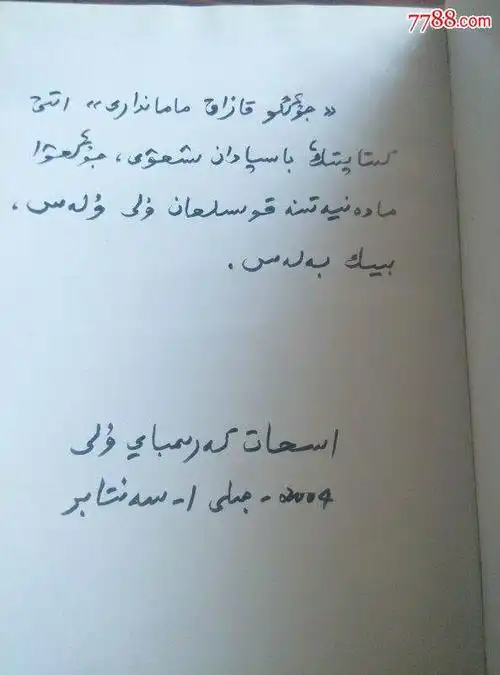 7788.com
«جۇڭگو قازاق ماماندارى» اتتى
كىتاپتىڭ باسپادان شىعۋى، جۇڭعوا
مادەنيەتىنە قوسىلعان ۇلى ۇلەس،
بيىك بەلەس.
اسحات كەرىمباي ۇلى
2004 - جىلى 1 - سەنتابر